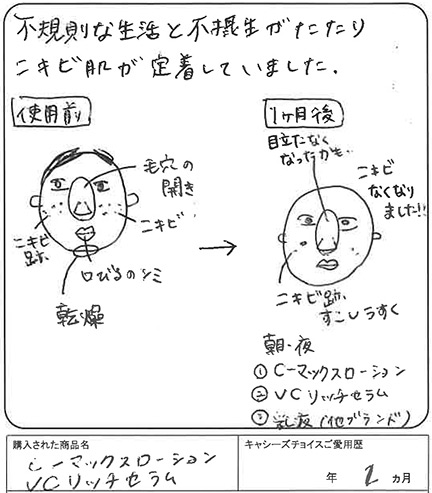 不規則な生活と不摂生がたたり
ニキビ肌が定着していました.
使用前
毛穴の
開き
ニキビ
ニキビ
跡
口びるのシミ
乾燥
1ヶ月後
目立たなく
なったかも…
ニキビ
なくなり
ました!!
ニキビ跡
すこしうすく
朝・夜
① C-マックスローション
② VCリッチセラム
③ 乳液(他ブランド)
購入された商品名
C-マックスローション
VCリッチセラム
キャシーズチョイスご愛用歴
年 2 カ月